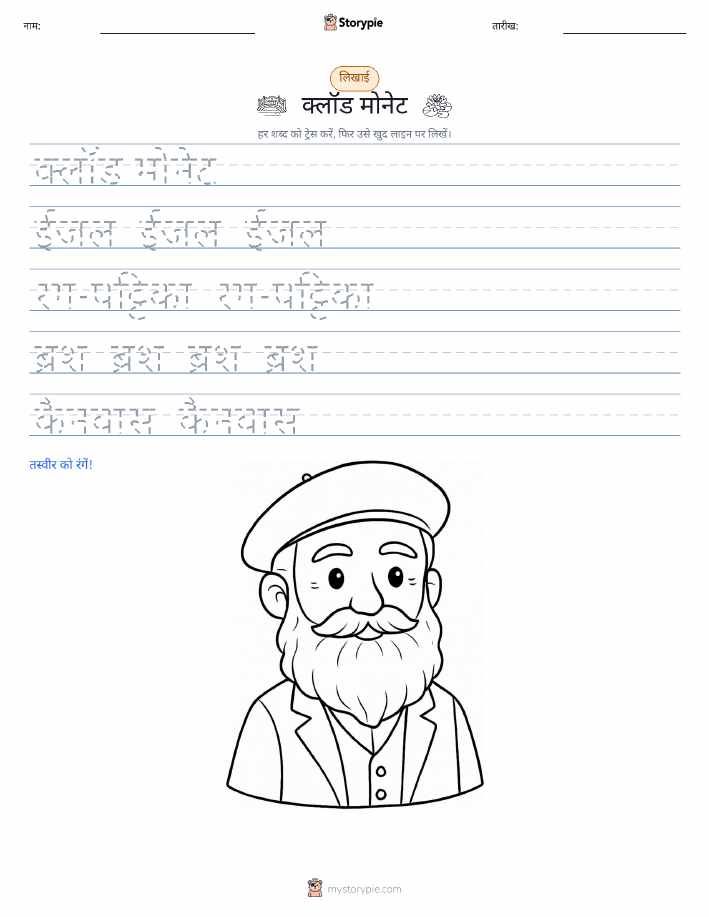 नाम:
Storypie
तारीख:
लिखाई
क्लॉड मोनेट
हर शब्द को ट्रेस करें, फिर उसे खुद लाइन पर लिखें।
क्लॉड मोनेट
ईजल ईजल ईजल
रंग-पट्टिका रंग-पट्टिका
ब्रश ब्रश ब्रश ब्रश
कैनवास कैनवास
तस्वीर को रंगें!
mystorypie.com